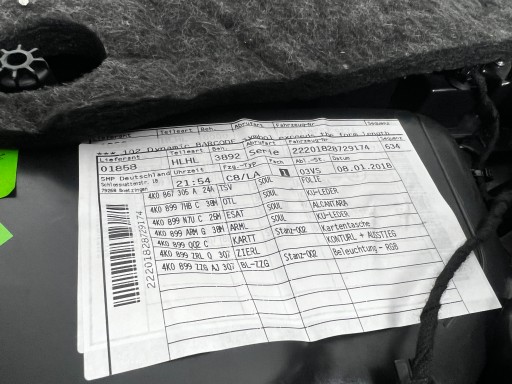 Lieferant Teileart Ben. Abrufart Fahrzeug-Nr Sequenz
*** 102 Dynamic-BARCODE symbol exceeds the form length
Lieferant Teileart Ben. Abrufart Fahrzeug-Nr. Sequenz
01858 HLHL 3892 Serie 22201828729174 634
SMP Deutschland Uhrzeit Fzg.-Typ Fach Abl.-St Datum
Schlossmattenstr. 18 21:54 C8/LA 1 03VS 08.01.2018
79268 Boetzingen
4K0 867 305 A 24A TSV SOUL FOLIE
4K0 899 7HB C 38M OTL SOUL KU-LEDER
4K0 899 N7U C 25M ESAT SOUL ALCANTARA
4K0 899 ARM G 38M ARML SOUL KU-LEDER
4K0 899 QQ2 C KARTT Stanz-002 Kartentasche
4K0 899 ZRL Q 3Q7 ZIERL KONTURL + AUSSTIEG
4K0 899 ZZG AJ 3Q7 BL-TZG Stanz-002 Beleuchtung - RGB
22201828729174